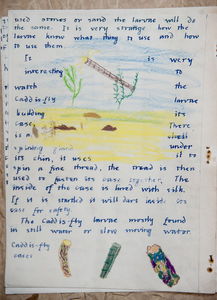 used stones or sand the larvae will do
the same. It is very strange how the
larvae know what thing to use and how
to use them.
It is very
interesting to
watch the
Caddisfly larvae
building its
case. There
is a small
spinning gland under
its chin, it uses it to
spin a fine thread, the tread is then
used to fasten its case together. The
inside of the case is lined with silk.
If it is startled it will dart inside its
case for safety.
The Caddis-fly larvae mostly found
in still water or slow moving water.
Caddis-fly
cases